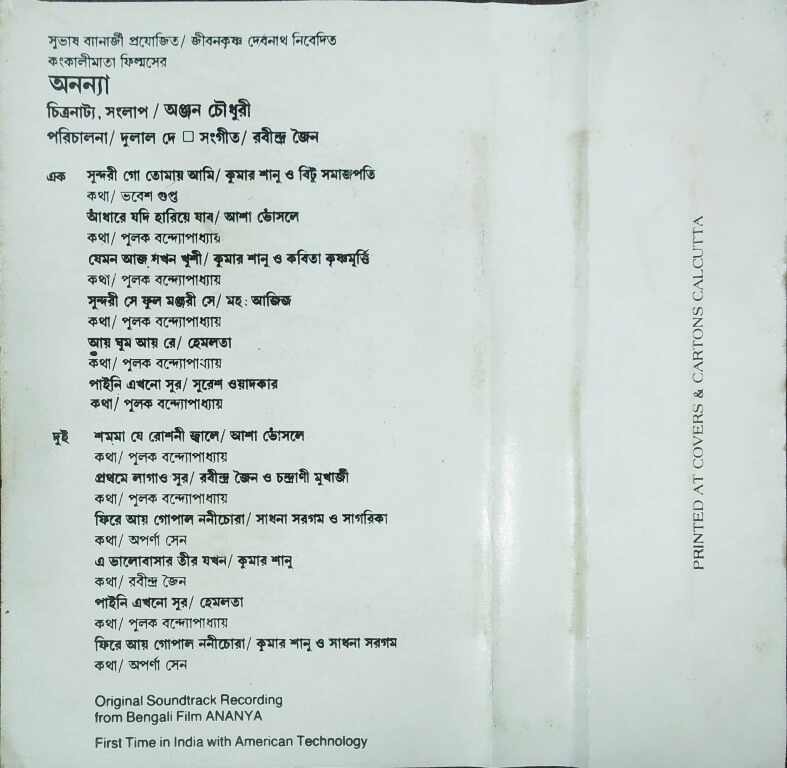 সুভাষ ব্যানার্জী প্রযোজিত/ জীবনকৃষ্ণ দেবনাথ নিবেদিত
কংকালীমাতা ফিল্মসের
অনন্যা
চিত্রনাট্য, সংলাপ / অঞ্জন চৌধুরী
পরিচালনা/ দুলাল দে □ সংগীত/ রবীন্দ্র জৈন
এক সুন্দরী গো তোমায় আমি/ কুমার শানু ও বিটু সমাজপতি
কথা/ ভবেশ গুপ্ত
আঁধারে যদি হারিয়ে যাব/ আশা ভোঁসলে
কথা/ পুলক বন্দ্যোপাধ্যায়
যেমন আজ যখন খুশী/ কুমার শানু ও কবিতা কৃষ্ণমূর্ত্তি
কথা/ পুলক বন্দ্যোপাধ্যায়
সুন্দরী সে ফুল মঞ্জরী সে/ মহ: আজিজ
কথা/ পুলক বন্দ্যোপাধ্যায়
আয় ঘুম আয় রে/ হেমলতা
কথা/ পুলক বন্দ্যোপাধ্যায়
পাইনি এখনো সুর/ সুরেশ ওয়াদকার
কথা/ পুলক বন্দ্যোপাধ্যায়
দুই শমমা যে রোশনী জ্বালে/ আশা ভোঁসলে
কথা/ পুলক বন্দ্যোপাধ্যায়
প্রথমে লাগাও সুর/ রবীন্দ্র জৈন ও চন্দ্রাণী মুখার্জী
কথা/ পুলক বন্দ্যোপাধ্যায়
ফিরে আয় গোপাল ননীচোরা/ সাধনা সরগম ও সাগরিকা
কথা/ অপর্ণা সেন
এ ভালোবাসার তীর যখন/ কুমার শানু
কথা/ রবীন্দ্র জৈন
পাইনি এখনো সুর/ হেমলতা
কথা/ পুলক বন্দ্যোপাধ্যায়
ফিরে আয় গোপাল ননীচোরা/ কুমার শানু ও সাধনা সরগম
কথা/ অপর্ণা সেন
Original Soundtrack Recording
from Bengali Film ANANYA
First Time in India with American Technology
PRINTED AT COVERS & CARTONS CALCUTTA